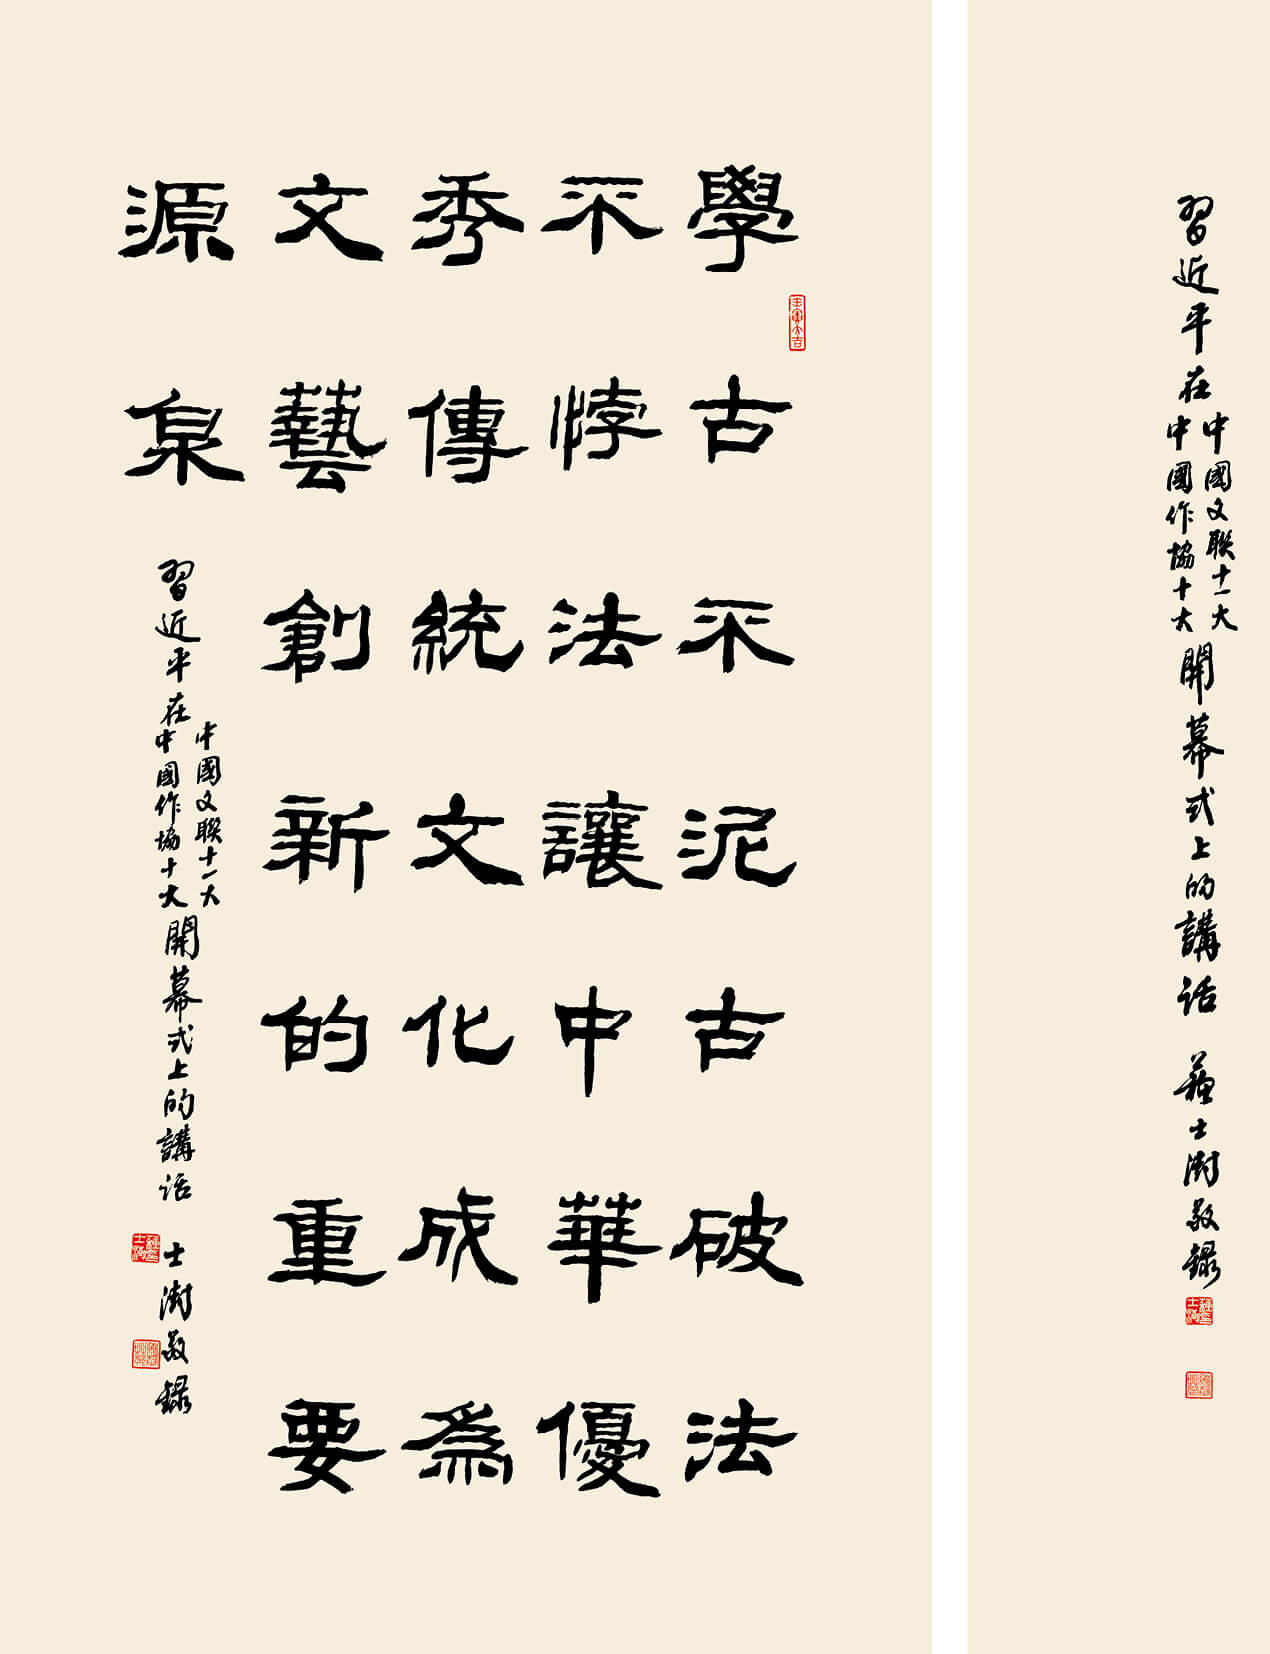 習近平在
中國文聯十一大
中國作協十大
開幕式上的講話 蘇士澍敬錄
學古不泥古破法
不悖法讓中華優
秀傳統文化成爲
文藝創新的重要
源泉
習近平在
中國文聯十一大
中國作協十大
開幕式上的講話 士澍敬錄